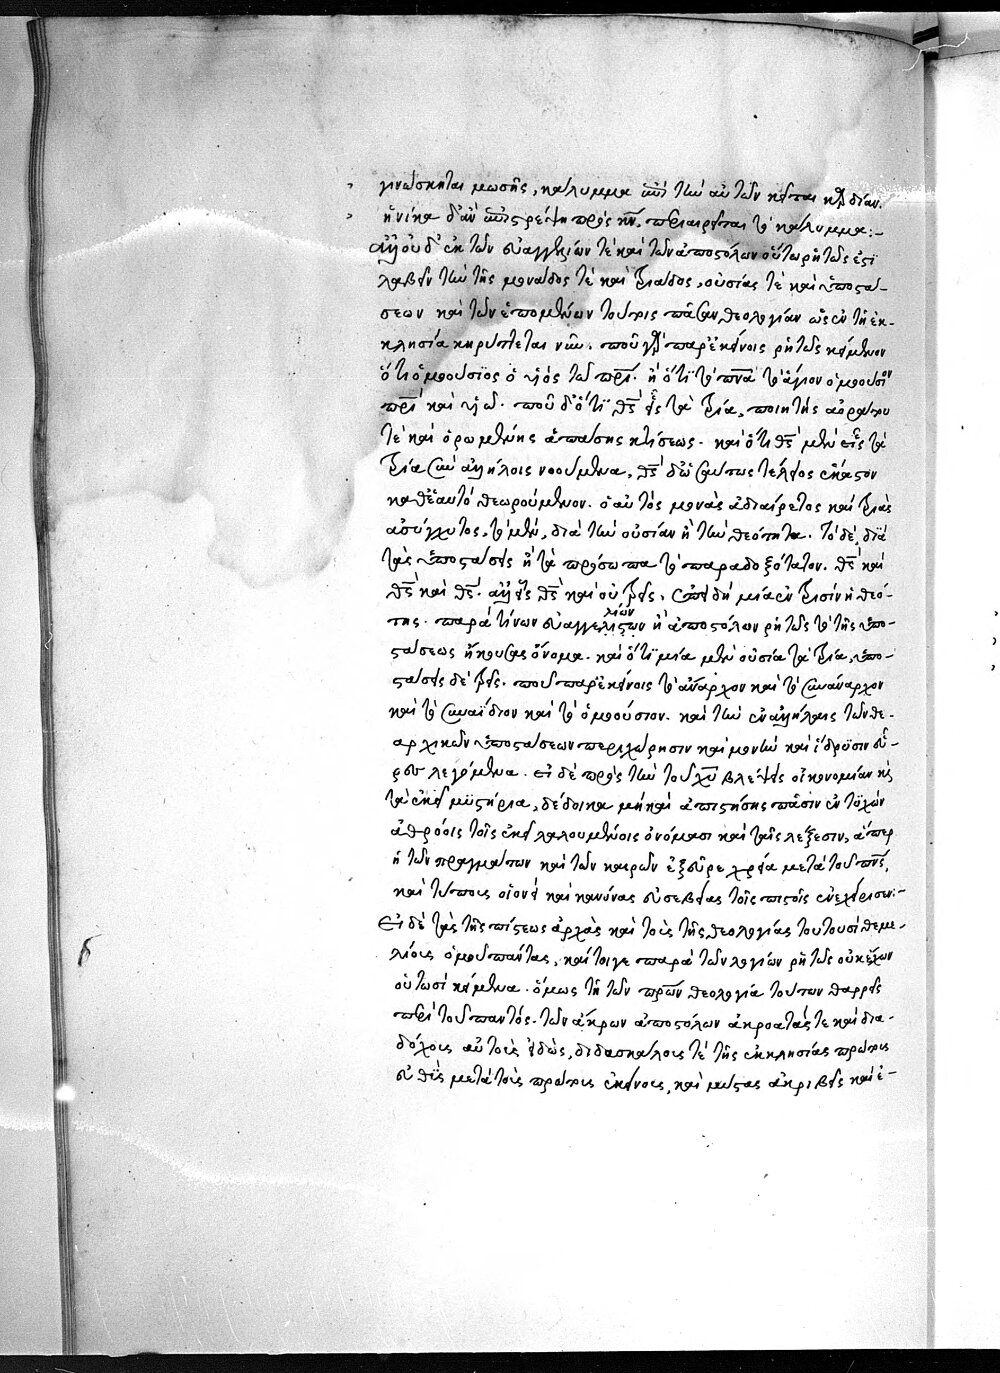 γινώσκηται μωσῆς, κάλυμμα ἐπὶ τὴν αὐτῶν κεῖται κρδίαν.
ἡνίκα δ' ἂν ἐπιστρέψῃ πρὸς κν, περιαιρεῖται τὸ κάλυμμα:-
ἀλλ' οὐδ' ἐκ τῶν εὐαγγελίων τὲ καὶ τῶν ἀποστόλων οὕτω ῥητῶς ἐστὶ
λαβεῖν τὴν τῆς μονάδος τὲ καὶ τριάδος, οὐσίας τὲ καὶ ὑποστά-
σεων καὶ τῶν ἑπομένων τούτοις πᾶσαν θεολογίαν ὡς ἐν τῇ ἐκ-
κλησία κηρύττεται νῦν. ποῦ γὰρ παρ' ἐκείνοις ῥητῶς κείμενον
ὅτι ὁμοούσιος ὁ υἱὸς τῶ πρί. ἢ ὅτι τὸ πνα τὸ ἅγιον ὁμοούσιον
πρὶ καὶ υἱῶ. ποῦ δ' ὅτι θς εἷς τὰ τρία, ποιητὴς ἀοράτου
τὲ καὶ ὁρωμένης ἁπάσης κτίσεως. καὶ ὅτι θς μὲν εἷς τὰ
τρία σὺν ἀλλήλοις νοούμενα, θς δ' ὡσαύτως τέλειος ἕκαστον
καθ' ἑαυτὸ θεωρούμενον. ὁ αὐτὸς μονὰς ἀδιαίρετος καὶ τριὰς
ἀσύγχυτος. τὸ μὲν, διὰ τὴν οὐσίαν ἢ τὴν θεότητα. τὸ δὲ, διὰ
τὰς ὑποστάσεις ἢ τὰ πρόσωπα τὸ παραδοξότατον. θς καὶ
θς καὶ θς. ἀλλ' εἷς θς καὶ οὐ τρεῖς, ἐπειδὴ μία ἐν τρισὶν ἡ θεό-
της. παρὰ τίνων εὐαγγελιστῶν ἢ ἀποστόλων ῥητῶς τὸ τῆς ὑπο-
στάσεως ἤκουσας ὄνομα. καὶ ὅτι μία μὲν οὐσία τὰ τρία, ὑπο-
στάσεις δὲ τρεῖς. ποῦ παρ' ἐκείνοις τὸ ἄναρχον καὶ τὸ συνάναρχον
καὶ τὸ συναΐδιον καὶ τὸ ὁμοούσιον. καὶ τὴν ἐν ἀλλήλαις τῶν θε-
αρχικῶν ὑποστάσεων περιχώρησιν καὶ μονὴν καὶ ἵδρυσιν εὗ-
ρου λεγόμενα. εἰ δὲ πρὸς τὴν τοῦ χυ βλέψεις οἰκονομίαν καὶ
τὰ ἐκεῖ μυστήρια, δέδοικα μὴ καὶ ἀπιστήσῃς πᾶσιν
ἀθρόοις τοῖς ἐκεῖ λαλουμένοις ὀνόμασι καὶ ταῖς λέξεσιν, ἅπερ
ἡ τῶν πραγμάτων καὶ τῶν καιρῶν ἐξεῦρε χρεία μετὰ τοῦ πνς,
καὶ τύπους οἱονεὶ καὶ κανόνας εὐσεβείας τοῖς πιστοῖς ἐνεχείρισεν:-
Εἰ δὲ τὰς τῆς πίστεως ἀρχὰς καὶ τοὺς τῆς θεολογίας τουτουσὶ θεμε-
λίους ὁμοῦ πάντας, καίτοιγε παρὰ τῶν λογίων ῥητῶς οὐκ ἔχων
οὑτωσὶ κείμενα. ὅμως τῇ τῶν πρων θεολογία τούτων θαρρεῖς
περὶ τοῦ παντὸς. τῶν ἄκρων ἀποστόλων ἀκροατάς τε καὶ δια-
δόχους αὐτοὺς εἰδὼς, διδασκάλους τὲ τῆς ἐκκλησίας πρώτους
εὐθὺς μετὰ τοὺς πρώτους ἐκείνους, καὶ μύστας ἀκριβεῖς καὶ ἐ-